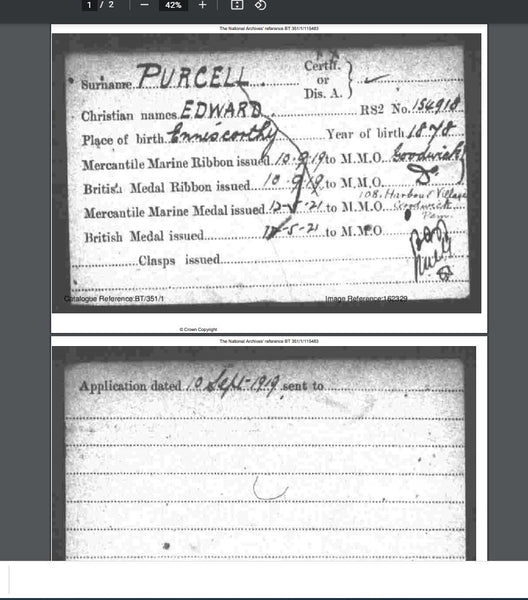 1 / 2 — 42% +
The National Archives' reference BT 351/1/115463
Surname PURCELL
Certif. or Dis. A. }
Christian names EDWARD RS2 No. 154918
Place of birth Enniscorthy Year of birth 1878
Mercantile Marine Ribbon issued 10.9.19 to M.M.O. Goodwick
British Medal Ribbon issued 10.9.19 to M.M.O. Do
108, Harbour Village
Mercantile Marine Medal issued 12-5-21 to M.M.O. Goodwick
Pem.
British Medal issued 12-5-21 to M.M.O.
Clasps issued
Catalogue Reference:BT/351/1 Image Reference:162329
© Crown Copyright
The National Archives' reference BT 351/1/115463
Application dated 10 Sept-1919 sent to